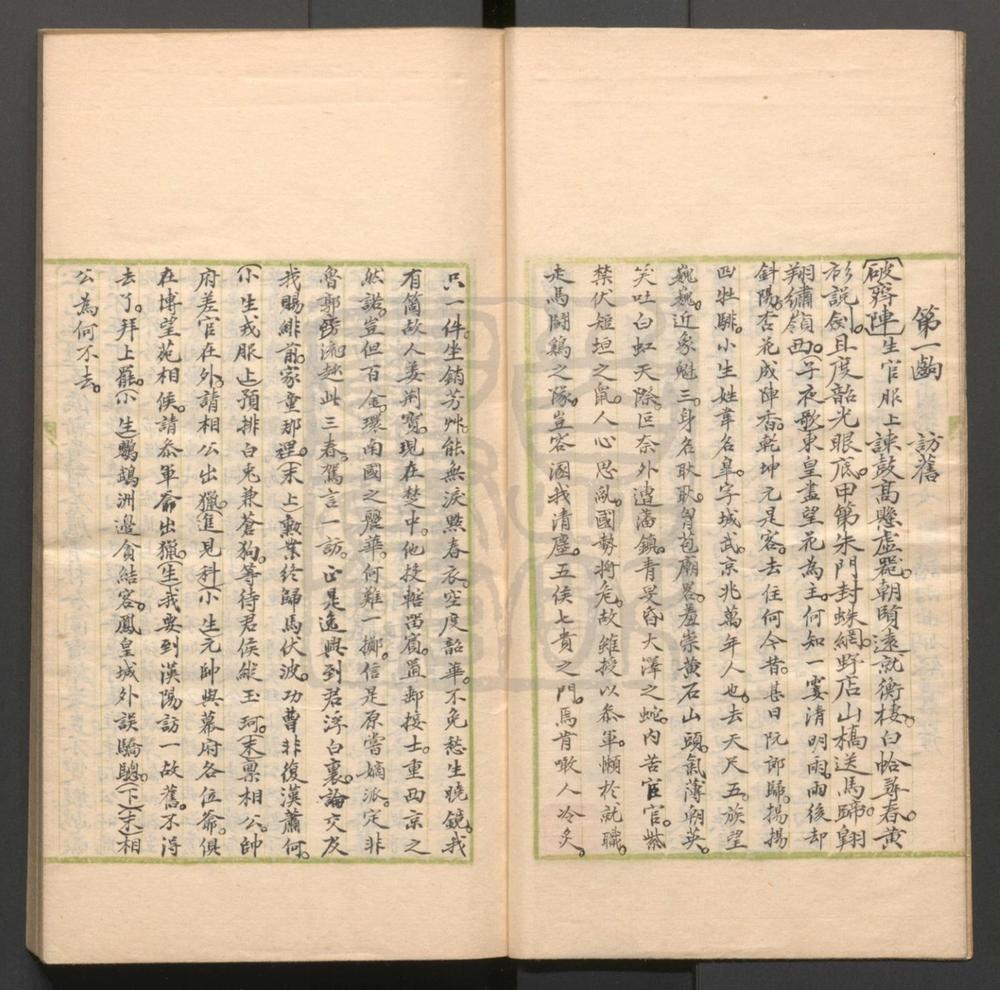 第一齣　訪舊
破齊陣生官服上諫鼓高懸虛器朝賢遠就衡棲白帢尋春黃
衫說劍且度韶光眼底甲第朱門封蛛網野店山橋送馬蹄翱
翔繡嶺西子夜歌東皇盡望花為主何知一霎清明雨雨後却
斜陽杏花成陣香乾坤元是客去住何今昔甚日阮郎歸揚揚
四牡騑小生姓韋名皐字城武京兆萬年人也去天尺五族望
巍巍近象魁三身名耿耿胷苞廟畧羞崇黄石山頭氣薄朝英
笑吐白虹天際叵奈外遭藩鎮青旻昏大澤之蛇內苦宦官紫
禁伏短垣之鼠人心思亂國勢將危故雖授以叅軍懶於就職
走馬鬪鷄之隊豈容溷我清塵五侯七貴之門焉肯噉人冷炙
只一件坐銷芳艸能無淚點春衣空度韶華不免愁生曉鏡我
有箇故人姜荊寶現在楚中他投轄畱賓置郵接士重西京之
然諾豈但百金環南國之麗華何難一擲信是原嘗嫡派定非
魯郭流趂此三春駕言一訪正是逸興到君浮白裏論交及
我賜緋前家童那裡末上勲業終歸馬伏波功曹非復漢蕭何
小生戎服上預排白兎兼蒼狗等待君侯縱玉珂末禀相公帥
府差官在外請相公出獵進見科小生元帥與幕府各位爺俱
在博望苑相候請叅軍爺出獵生我要到漢陽訪一故舊不得
去了拜上罷小生鸚鵡洲邊貪結客鳳皇城外誤驕驄下末相
公為何不去